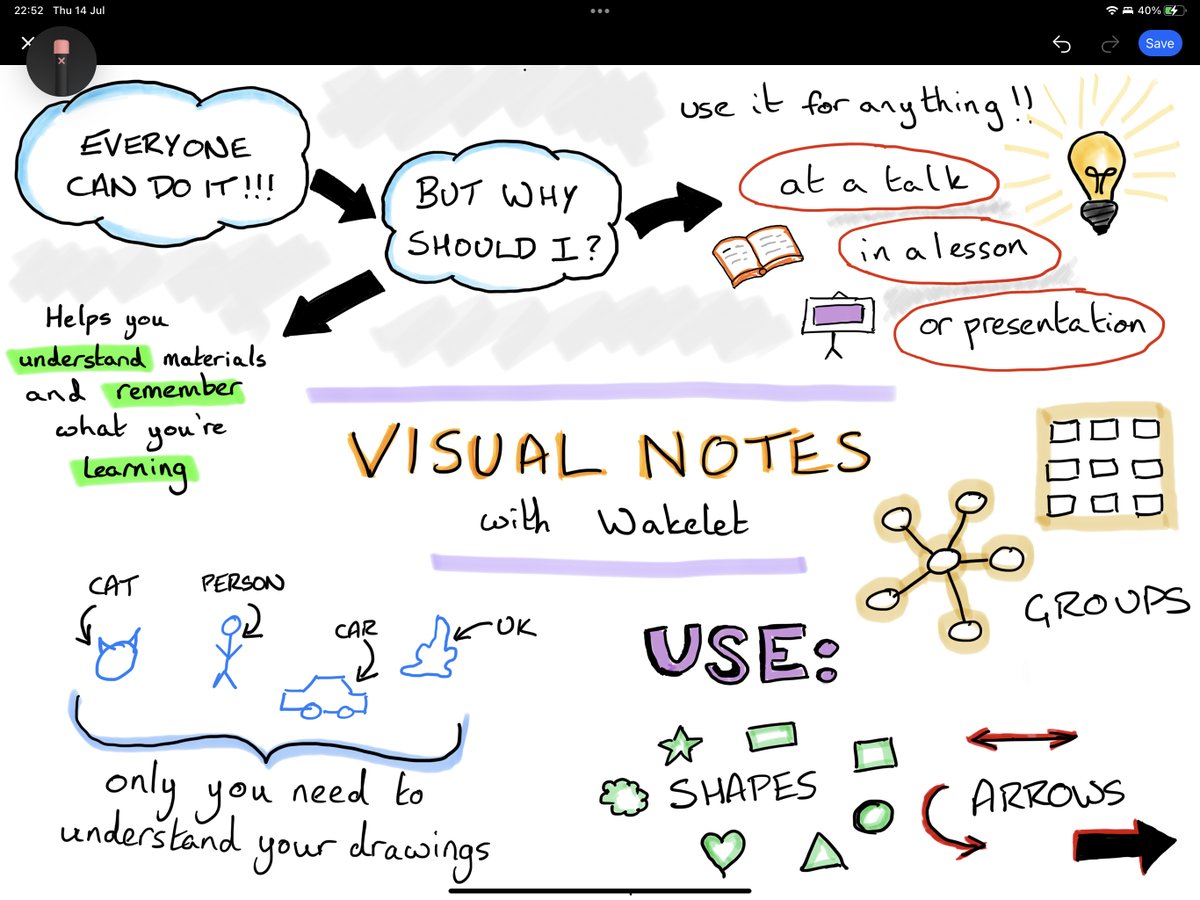 22:52 Thu 14 Jul
40%
Save
EVERYONE
CAN DO IT!!!
BUT WHY
SHOULD I?
use it for anything!!
at a talk
in a lesson
or presentation
Helps you
understand materials
and remember
what you're
learning
VISUAL NOTES
with Wakelet
CAT
PERSON
CAR
UK
only you need to
understand your drawings
GROUPS
USE:
SHAPES
ARROWS